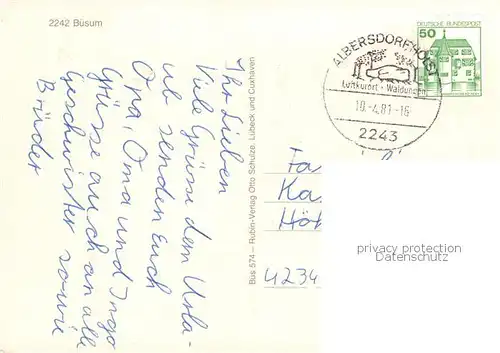 2242 Büsum
Ihr Lieben
Viele Grüsse dem Urla-
ub senden Euch
Opa, Oma und Ingo
Grüsse auch an alle
Geschwister sowie
Brüder
Büs 574 – Rubin-Verlag Otto Schulze, Lübeck und Cuxhaven
ALBERSDORF HOLST
Luftkurort · Waldungen
10.-4.81-16
2243
DEUTSCHE BUNDESPOST
50
Fa
Ka
Hö
4234
privacy protection
Datenschutz